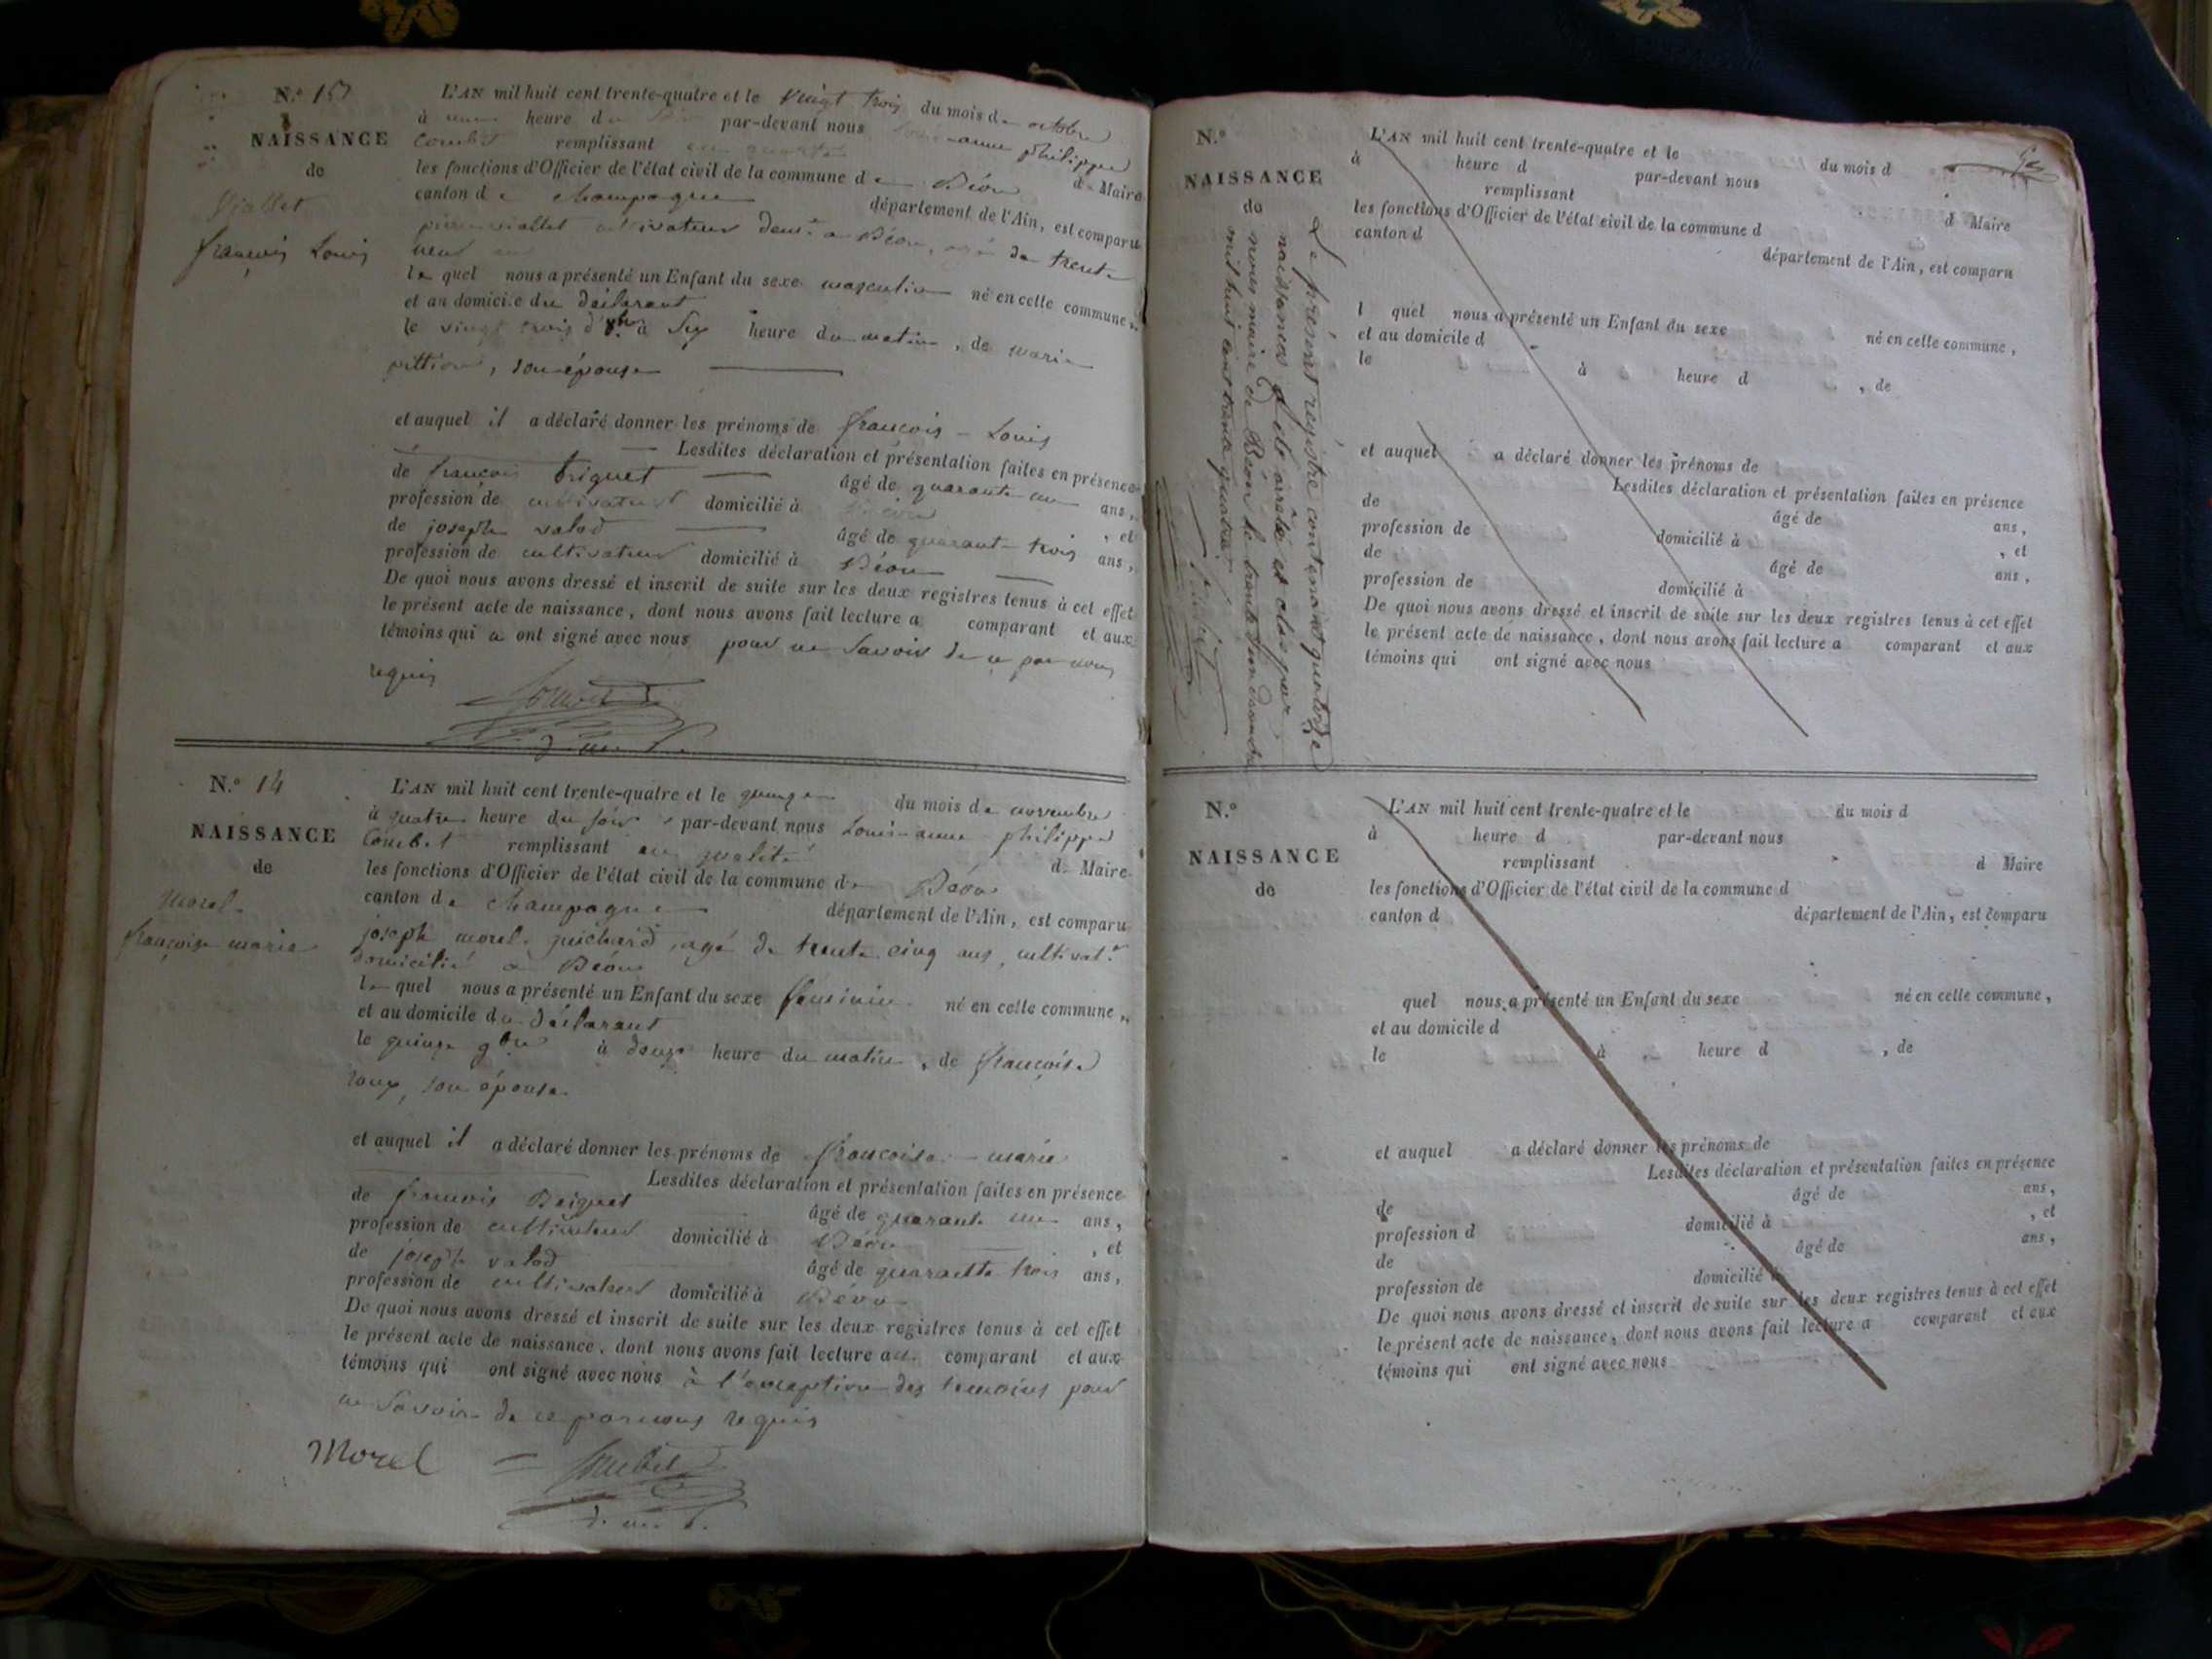 N.º 13
NAISSANCE
de
Viallet
françois Louis
L'AN mil huit cent trente-quatre et le vingt trois du mois de octobre
à une heure du soir par-devant nous Louis-anne philippe
Combet remplissant en qualité de Maire
les fonctions d'Officier de l'état civil de la commune de Béon
canton de champagne département de l'Ain, est comparu
viallet cultivateur à Béon, agé de trente
neuf ans
le quel nous a présenté un Enfant du sexe masculin né en celle commune,
et au domicile du déclarant
le vingt trois d'8bre à six heure du matin, de marie
, son épouse
et auquel il a déclaré donner les prénoms de françois - Louis
Lesdites déclaration et présentation faites en présence
de françois âgé de quarante un ans,
profession de cultivateur domicilié à Béon, et
de joseph valod âgé de quarante trois ans,
profession de cultivateur domicilié à Béon
De quoi nous avons dressé et inscrit de suite sur les deux registres tenus à cet effet
le présent acte de naissance, dont nous avons fait lecture a comparant et aux
témoins qui ont signé avec nous pour ne savoir de ce par nous
requis
Combet
N.º 14
NAISSANCE
de
Morel
françoise marie
L'AN mil huit cent trente-quatre et le quinze du mois de novembre
à quatre heure du soir par-devant nous Louis-anne philippe
Combet remplissant en qualité de Maire
les fonctions d'Officier de l'état civil de la commune de Béon
canton de champagne département de l'Ain, est comparu
joseph morel guichard, agé de trente cinq ans, cultivat.r
domicilié à Béon
le quel nous a présenté un Enfant du sexe féminin né en celle commune,
et au domicile du déclarant
le quinze 9bre à douze heure du matin, de françoise
roux, son épouse
et auquel il a déclaré donner les prénoms de françoise - marie
Lesdites déclaration et présentation faites en présence
de françois âgé de quarante un ans,
profession de cultivateur domicilié à Béon, et
de joseph valod âgé de quarante trois ans,
profession de cultivateur domicilié à Béon
De quoi nous avons dressé et inscrit de suite sur les deux registres tenus à cet effet
le présent acte de naissance, dont nous avons fait lecture au comparant et aux
témoins qui ont signé avec nous à l'exception des temoins pour
ne savoir de ce par nous requis
Morel
Combet
N.º
NAISSANCE
de
Le présent registre contenant quatorze
naissances a été arrêté et clos par
nous maire de Béon le trente un décembre
mil huit cent trente quatre
Combet
L'AN mil huit cent trente-quatre et le du mois d
à heure d par-devant nous
remplissant d Maire
les fonctions d'Officier de l'état civil de la commune d
canton d département de l'Ain, est comparu
l quel nous a présenté un Enfant du sexe né en celle commune,
et au domicile d
le à heure d , de
et auquel a déclaré donner les prénoms de
Lesdites déclaration et présentation faites en présence
de âgé de ans,
profession de domicilié à , et
de âgé de ans,
profession de domicilié à
De quoi nous avons dressé et inscrit de suite sur les deux registres tenus à cet effet
le présent acte de naissance, dont nous avons fait lecture a comparant et aux
témoins qui ont signé avec nous
N.º
NAISSANCE
de
L'AN mil huit cent trente-quatre et le du mois d
à heure d par-devant nous
remplissant d Maire
les fonctions d'Officier de l'état civil de la commune d
canton d département de l'Ain, est comparu
quel nous a présenté un Enfant du sexe né en celle commune,
et au domicile d
le à heure d , de
et auquel a déclaré donner les prénoms de
Lesdites déclaration et présentation faites en présence
de âgé de ans,
profession d domicilié à , et
de âgé de ans,
profession de domicilié à
De quoi nous avons dressé et inscrit de suite sur les deux registres tenus à cet effet
le présent acte de naissance, dont nous avons fait lecture a comparant et aux
témoins qui ont signé avec nous